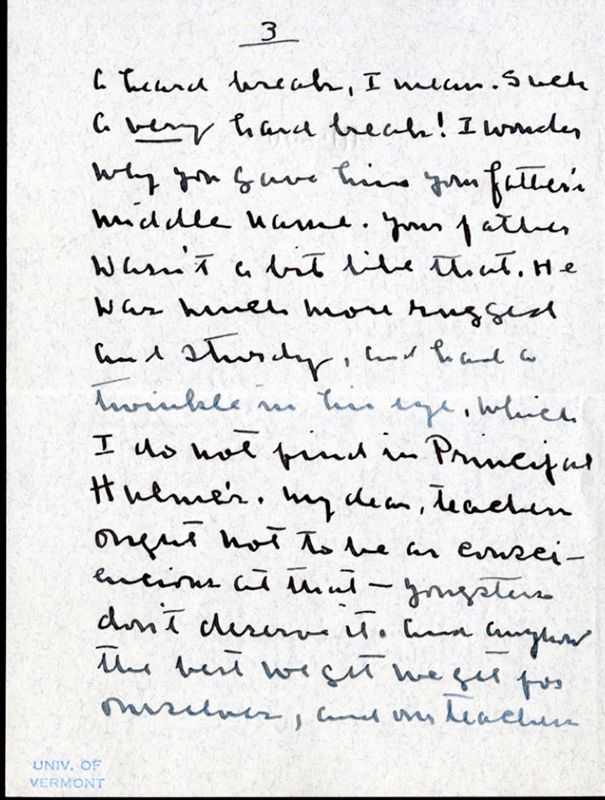 3
a heard break, I mean. Such
a very hard break! I wonder
why you gave him your father's
middle name. Your father
wasn't a bit like that. He
was much more rugged
and sturdy, and had a
twinkle in his eye, which
I do not find in Principal
Hulme's. My dear, teachers
ought not to be as consci-
encious as that – yongsters
don't deserve it. And anyhow
the best we get we get for
ourselves, and our teachers
UNIV. OF
VERMONT